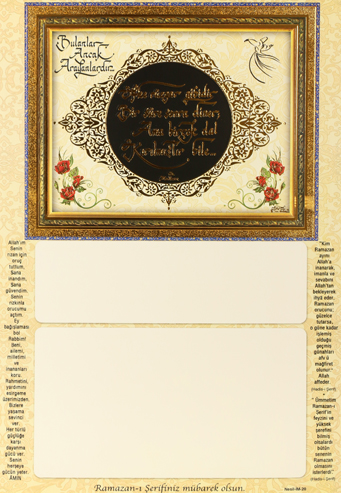 Bulanlar
Ancak
Arayanlardır
Allah'ım
Senin
rızan için
oruç
tuttum,
Sana
inandım,
Sana
güvendim.
Senin
rızkınla
orucumu
açtım.
Ey
bağışlaması
bol
Rabbim!
Beni,
ailemi,
milletimi
ve
inananları
koru.
Rahmetini,
yardımını
esirgeme
üzerimizden.
Bizlere
yaşama
sevinci
ver.
Her türlü
güçlüğe
karşı
dayanma
gücü ver.
Senin
herşeye
gücün yeter.
ÂMİN
"Kim
Ramazan
ayını
Allah'a
inanarak,
imanla ve
sevabını
Allah'tan
bekleyerek
ihya eder,
Ramazan
orucunu
güzelce
tutarsa,
o güne kadar
işlemiş
olduğu
geçmiş
günahları
afv ü
mağfiret
olunur."
Allah
affeder.
(Hadis-i Şerif)
" Ümmetim
Ramazan-ı
Şerif'in
feyzini ve
yüksek
şerefini
bilmiş
olsalardı
bütün
senenin
Ramazan
olmasını
isterlerdi."
(Hadis-i Şerif)
Ramazan-ı Şerifiniz mübarek olsun.